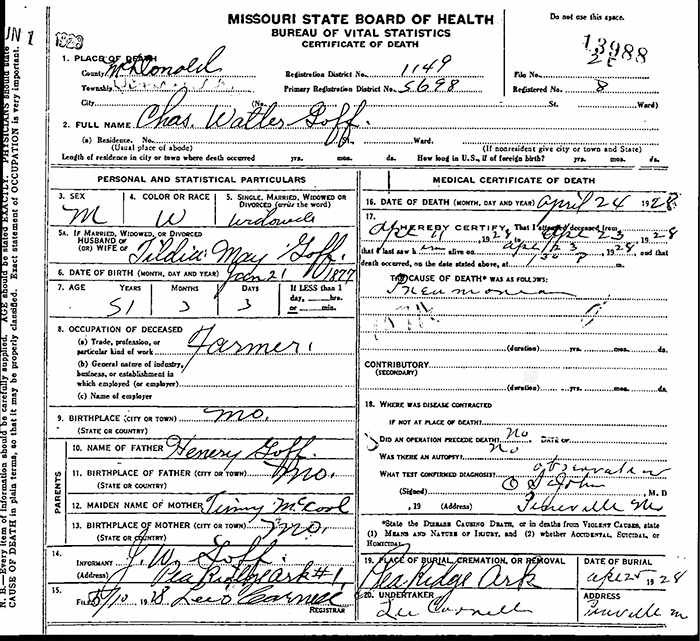 MISSOURI STATE BOARD OF HEALTH
BUREAU OF VITAL STATISTICS
CERTIFICATE OF DEATH
Do not use this space.
JUN 1 1928
13988
1. PLACE OF DEATH
County McDonald
Registration District No. 1149
File No.
Township
Primary Registration District No. 5698
Registered No. 8
City (No. St. Ward)
2. FULL NAME Chas. Walter Goff.
(a) Residence. No. St. Ward.
(Usual place of abode) (If nonresident give city or town and State)
Length of residence in city or town where death occurred yrs. mos. ds. How long in U.S., if of foreign birth? yrs. mos. ds.
PERSONAL AND STATISTICAL PARTICULARS
3. SEX M
4. COLOR OR RACE W
5. SINGLE, MARRIED, WIDOWED OR DIVORCED (write the word)
5A. IF MARRIED, WIDOWED, OR DIVORCED
HUSBAND OF
(OR) WIFE OF May Goff.
6. DATE OF BIRTH (MONTH, DAY AND YEAR) Jan 21 1877
7. AGE YEARS MONTHS DAYS If LESS than 1 day, hrs. or min.
51 3 3
8. OCCUPATION OF DECEASED
(a) Trade, profession, or
particular kind of work Farmer.
(b) General nature of industry,
business, or establishment in
which employed (or employer)
(c) Name of employer
9. BIRTHPLACE (CITY OR TOWN) Mo.
(STATE OR COUNTRY)
PARENTS
10. NAME OF FATHER Henery Goff.
11. BIRTHPLACE OF FATHER (CITY OR TOWN) Mo.
(STATE OR COUNTRY)
12. MAIDEN NAME OF MOTHER McCool
13. BIRTHPLACE OF MOTHER (CITY OR TOWN) Mo.
(STATE OR COUNTRY)
14. INFORMANT J. W. Goff.
(Address) Pea Ridge Ark #1,
15. FILED 5/10 1928
REGISTRAR
MEDICAL CERTIFICATE OF DEATH
16. DATE OF DEATH (MONTH, DAY AND YEAR) April 24 1928
17. I HEREBY CERTIFY, That I attended deceased from
, 1928 Apr 23, 1928
that I last saw him alive on Apr 23, 1928, and that
death occurred, on the date stated above, at m.
THE CAUSE OF DEATH* WAS AS FOLLOWS:
Pneumonia
(duration) yrs. mos. ds.
CONTRIBUTORY
(SECONDARY)
(duration) yrs. mos. ds.
18. WHERE WAS DISEASE CONTRACTED
IF NOT AT PLACE OF DEATH?
DID AN OPERATION PRECEDE DEATH? No DATE OF
WAS THERE AN AUTOPSY? No
WHAT TEST CONFIRMED DIAGNOSIS? Observation
(Signed) , M. D
, 19 (Address) Pineville Mo
*State the DISEASE CAUSING DEATH, or in deaths from VIOLENT CAUSES, state
(1) MEANS AND NATURE OF INJURY, and (2) whether ACCIDENTAL, SUICIDAL, or
HOMICIDAL.
19. PLACE OF BURIAL, CREMATION, OR REMOVAL
DATE OF BURIAL
Pea Ridge Ark
Apr 25 1928
20. UNDERTAKER
ADDRESS
Lee
N. B.—Every item of information should be carefully supplied. AGE should be stated EXACTLY. PHYSICIANS should state
CAUSE OF DEATH in plain terms, so that it may be properly classified. Exact statement of OCCUPATION is very important.